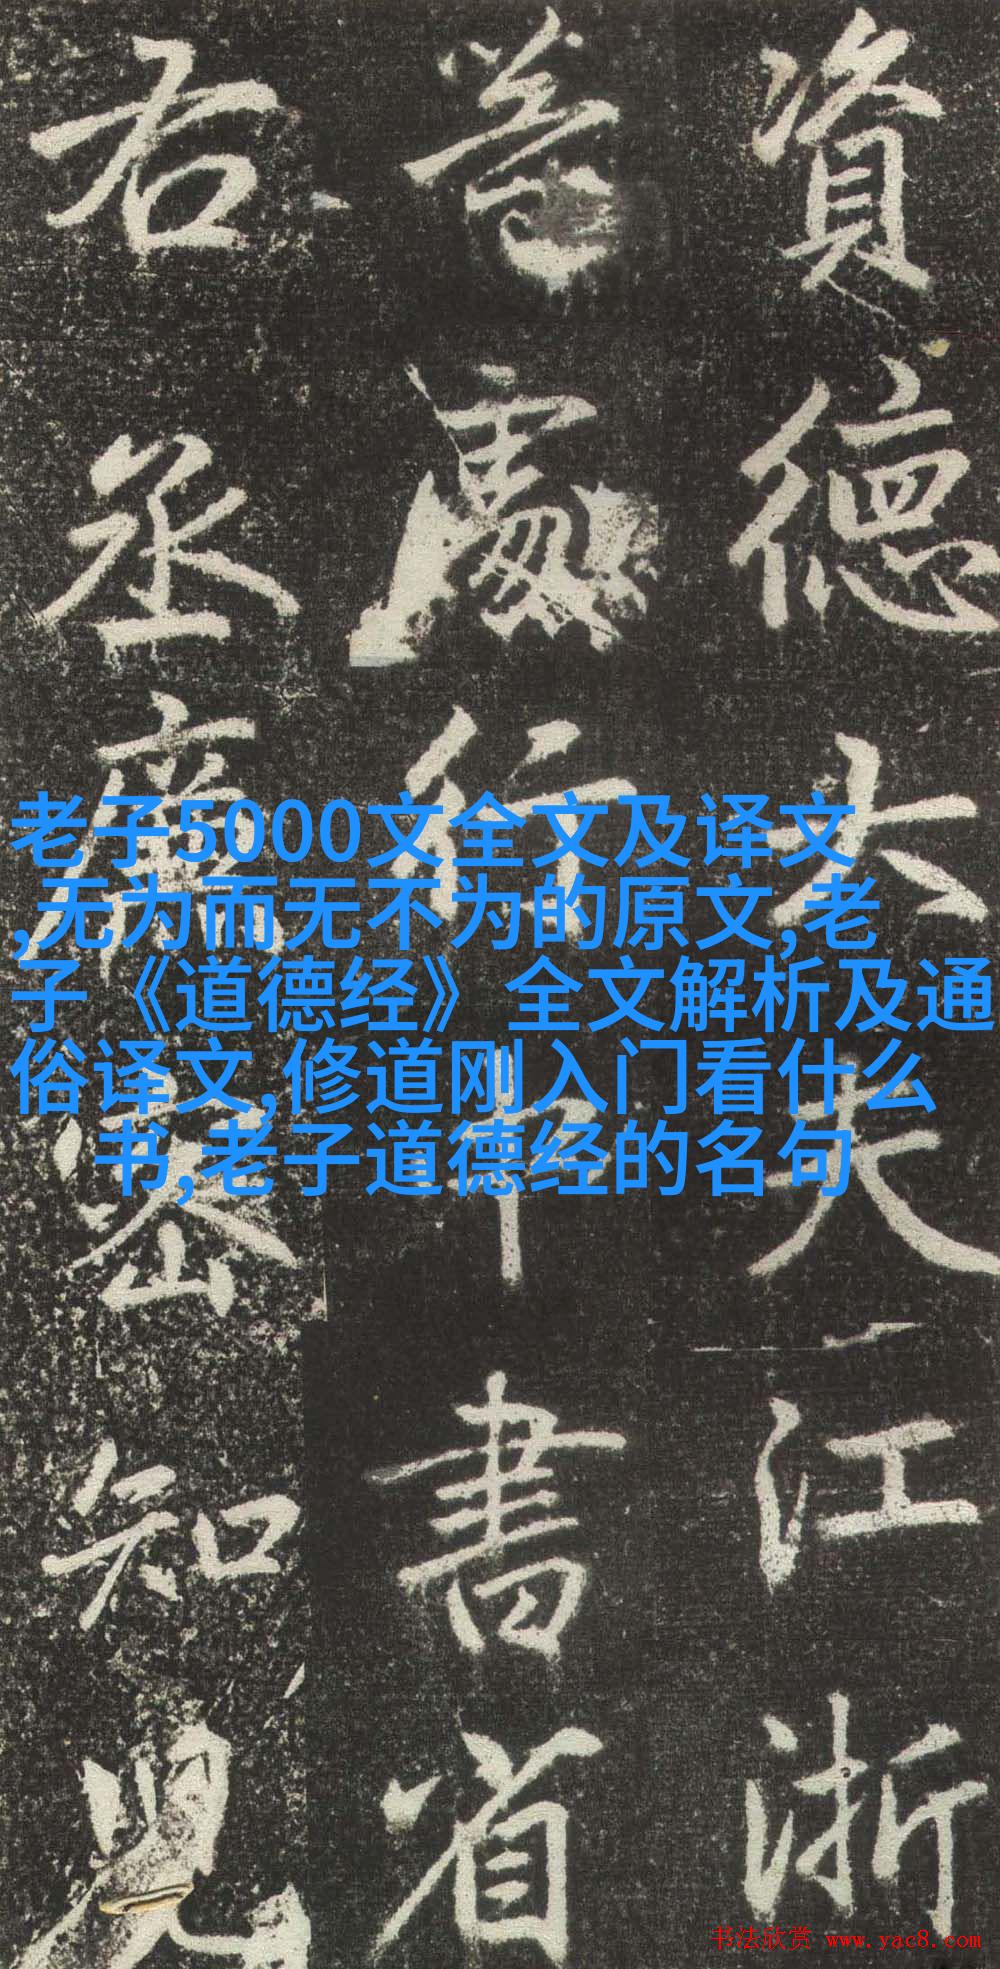 資德大夫江浙
等處行中書省
右丞廉密知兒
老子5000文全文及译文
,无为而无不为的原文,老
子《道德经》全文解析及通
俗译文,修道刚入门看什么
书,老子道德经的名句
书法欣赏 www.yac8.com